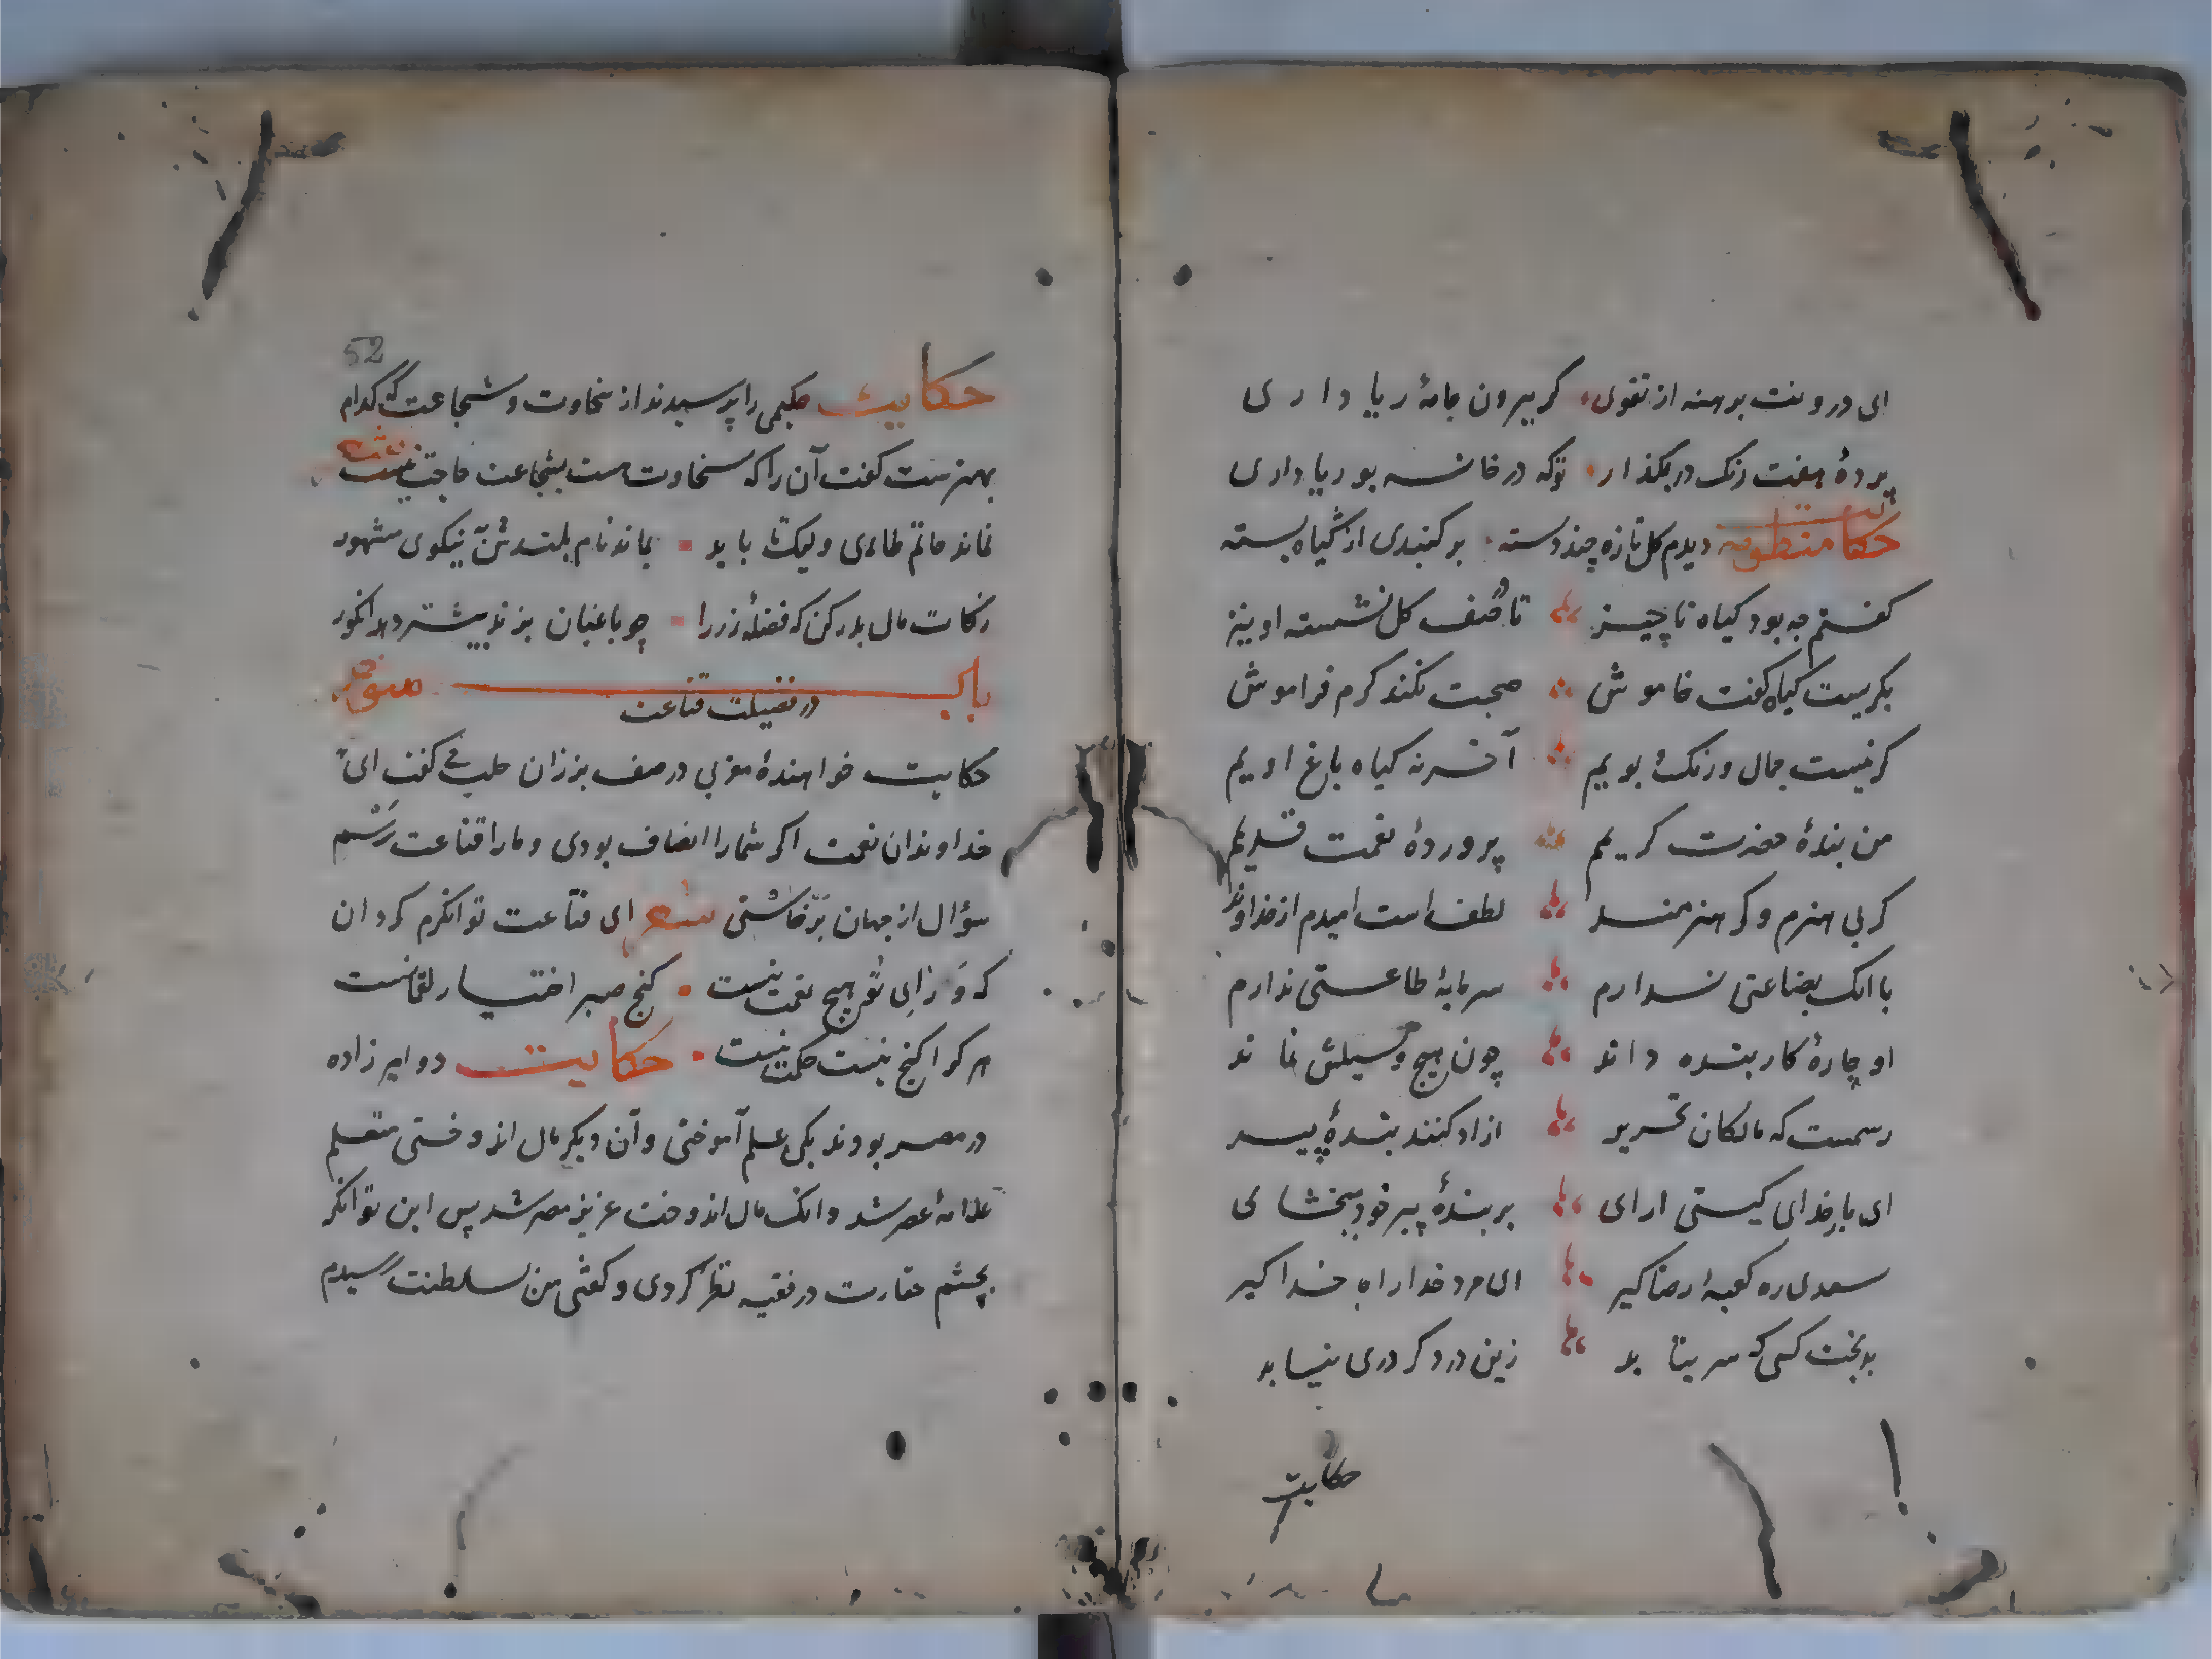 ای درونت برهنه از تقوی کز بیرون جامهٔ ریا داری
پردهٔ هفت رنک در بگذار توکه در خانه بوریا داری
حکایت منظومه دیدم کل تازه چند دسته بر کنبدی از کیاه بسته
کفتم چه بود کیاه ناچیز تا در صف کل نشسته او نیز
بکریست کیاه کفت خاموش صحبت نکند کرم فراموش
کر نیست جمال ورنک بویم آخر نه کیاه باغ اویم
من بندهٔ حضرت کریم پروردهٔ نعمت قدیم
کر بی هنرم وکر هنرمند لطف است امیدم از خداوند
با انک بضاعتی ندارم سرمایهٔ طاعتی ندارم
او چارهٔ کار بنده داند چون هیچ وسیلتش نماند
رسمست که مالکان تحریر ازاد کنند بندهٔ پیر
ای بارخدای کیتی ارای بر بندهٔ پیر خود ببخشای
سعدی ره کعبهٔ رضا کیر ای مرد خدا راه خدا کیر
بدبخت کسی که سر بتابد زین در که دری نیابد
حکایت
52
حکایت حکیمی را پرسیدند از سخاوت وشجاعت که کدام
بهترست کفت آن راکه سخاوت هست بشجاعت حاجت نیست شعر
نماند حاتم طاءی ولیک تا باید بماند نام بلندش بنیکوی مشهور
زکات مال بدر کن که فضلهٔ زر را چو باغبان بزند بیشتر دهد انکور
باب سوم
در فضیلت قناعت
حکایت خواهندهٔ مغربی در صف بزازان حلب می کفت ای
خداوندان نعمت اکر شمارا انصاف بودی ومارا قناعت رسم
سؤال از جهان برخاستی شعر ای قناعت توانکرم کردان
که ورای تو هیچ نعمت نیست کنج صبر اختیار لقمانست
هر کرا کنج نیست حکمت نیست حکایت دو امیر زاده
در مصر بودند یکی علم آموختی وآن دیکر مال اندوختی متعلم
علامهٔ عصر شد وانک مال اندوخت عزیز مصر شد پس این توانکر
بچشم حقارت در فقیه نظر کردی وکفتی من بسلطنت رسیدم